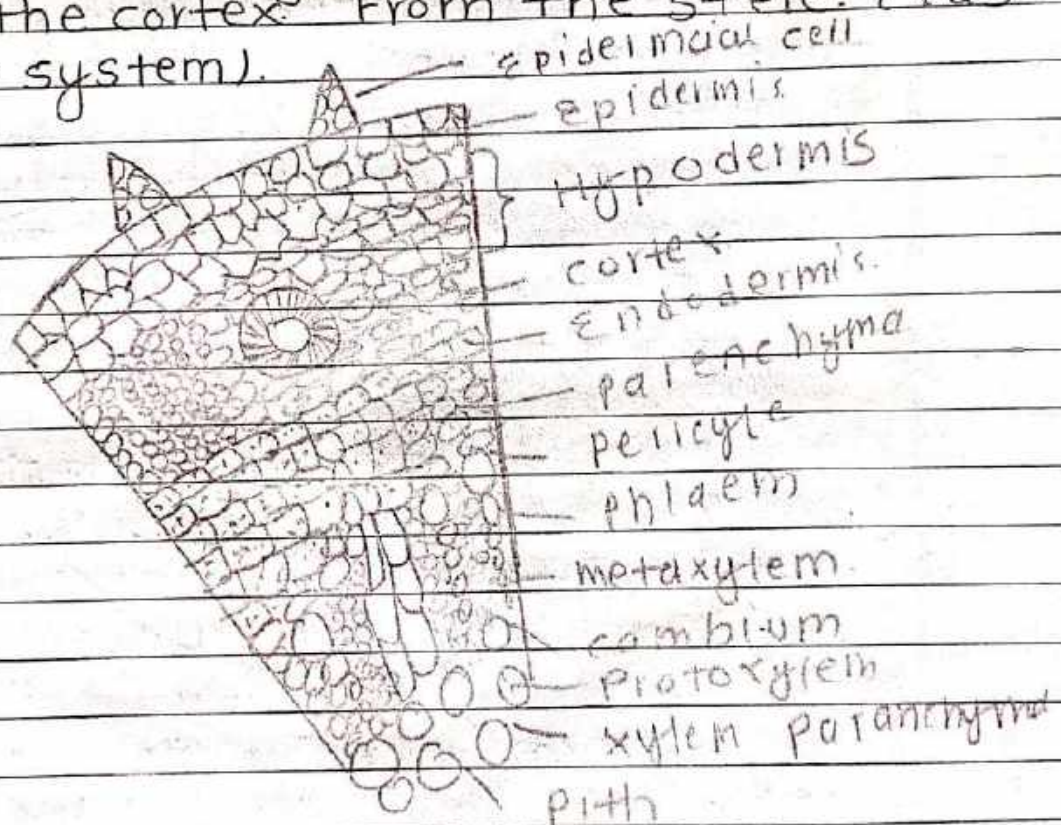 the cortex From the stele.
system).
Epidermaial cell
Epidermis
Hypodermis
cortex
Endodermis.
parenchyma
pericycle
phlaem
metaxylem
cambium
Protoxylem
xylem paranchyma
pith